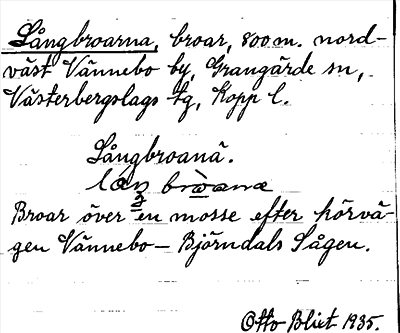 Långbroarna, broar, 800 m. nord-
väst Vännebo by, Grangärde sn,
Västerbergslags tg, Kopp l.
Långbroanä.
Broar över en mosse efter körvä-
gen Vännebo - Björndals Sågen.
Otto Blixt 1935.